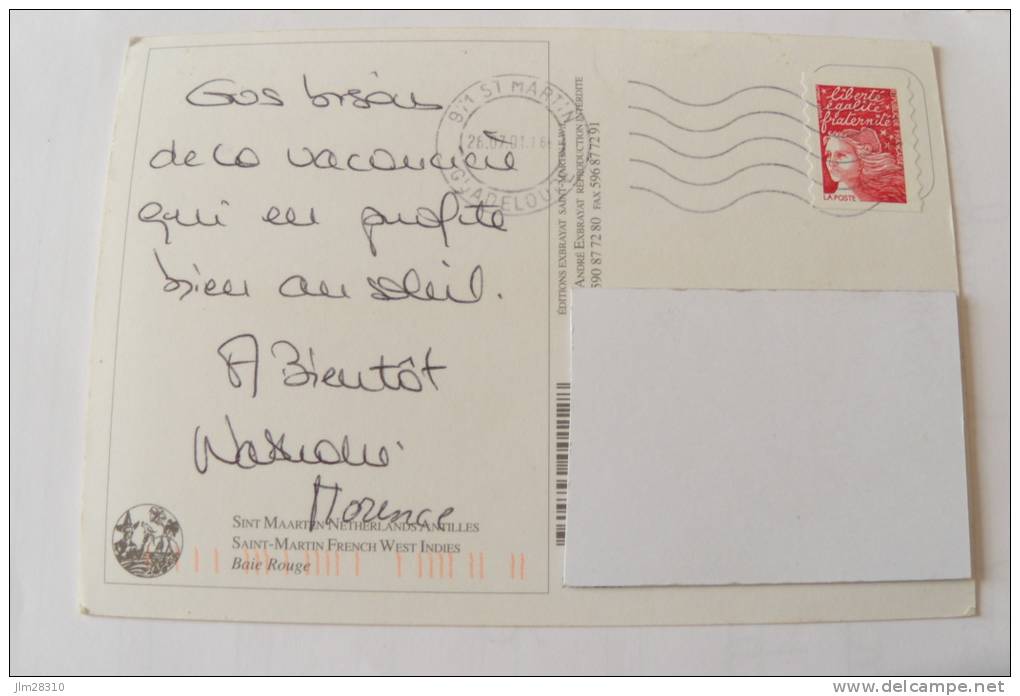 Gos bisous
de la vacancière
qui en profite
bien au soleil.
A Bientôt
SINT MAARTEN NETHERLANDS ANTILLES
SAINT-MARTIN FRENCH WEST INDIES
Baie Rouge
971 ST MARTIN
GUADELOUPE
ÉDITIONS EXBRAYAT SAINT-MARTIN
ANDRÉ EXBRAYAT REPRODUCTION INTERDITE
590 87 72 80 FAX 596 87 72 91
liberté
égalité
fraternité
RÉPUBLIQUE FRANÇAISE
LA POSTE
jlm28310
www.delcampe.net